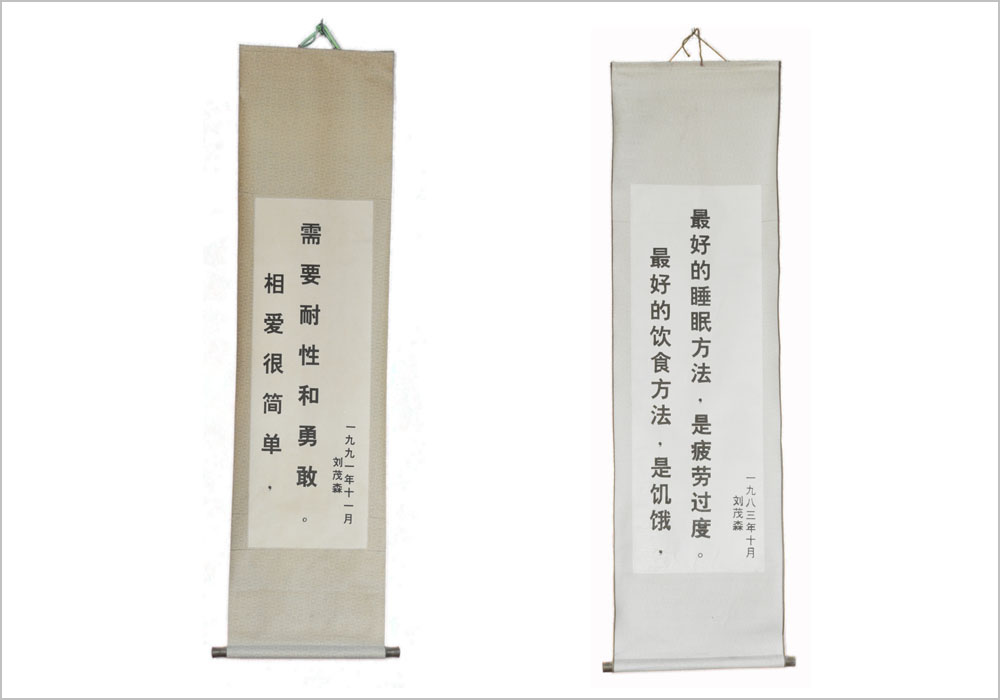 相爱很简单，
需要耐性和勇敢。
刘茂森
一九九一年十一月
最好的饮食方法，是饥饿，
最好的睡眠方法，是疲劳过度。
刘茂森
一九八三年十月